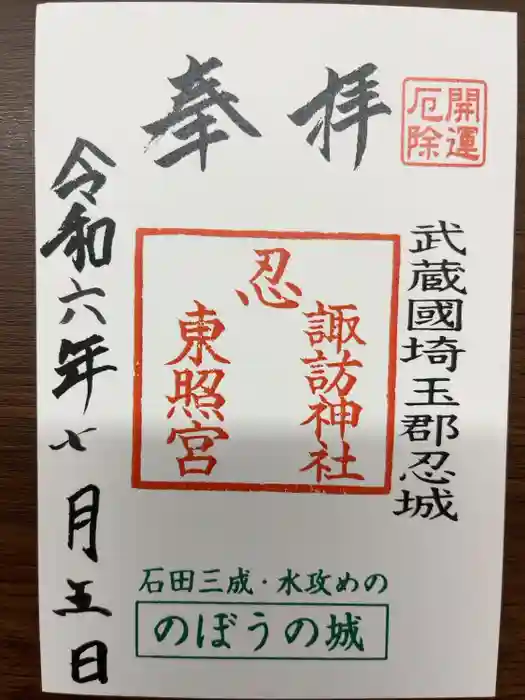 開運
厄除
奉拝
武蔵國埼玉郡忍城
忍
諏訪神社
東照宮
令和六年七月五日
石田三成・水攻めの
のぼうの城